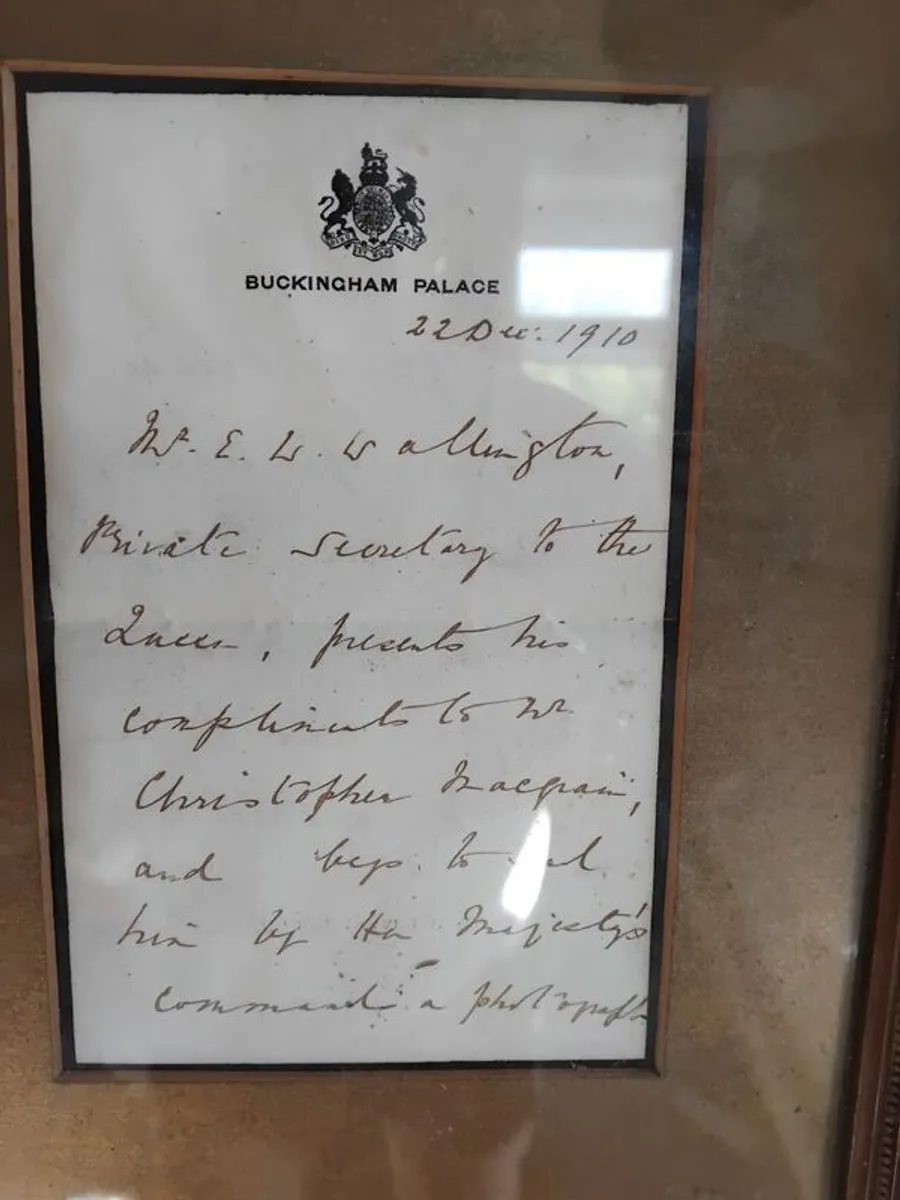 BUCKINGHAM PALACE
22 Dec: 1910
Mr. E. W. Wallington,
Private Secretary to the
Queen, presents his
compliments to Mr
Christopher Macgrain,
and begs to
him by Her Majesty's
command a photograph